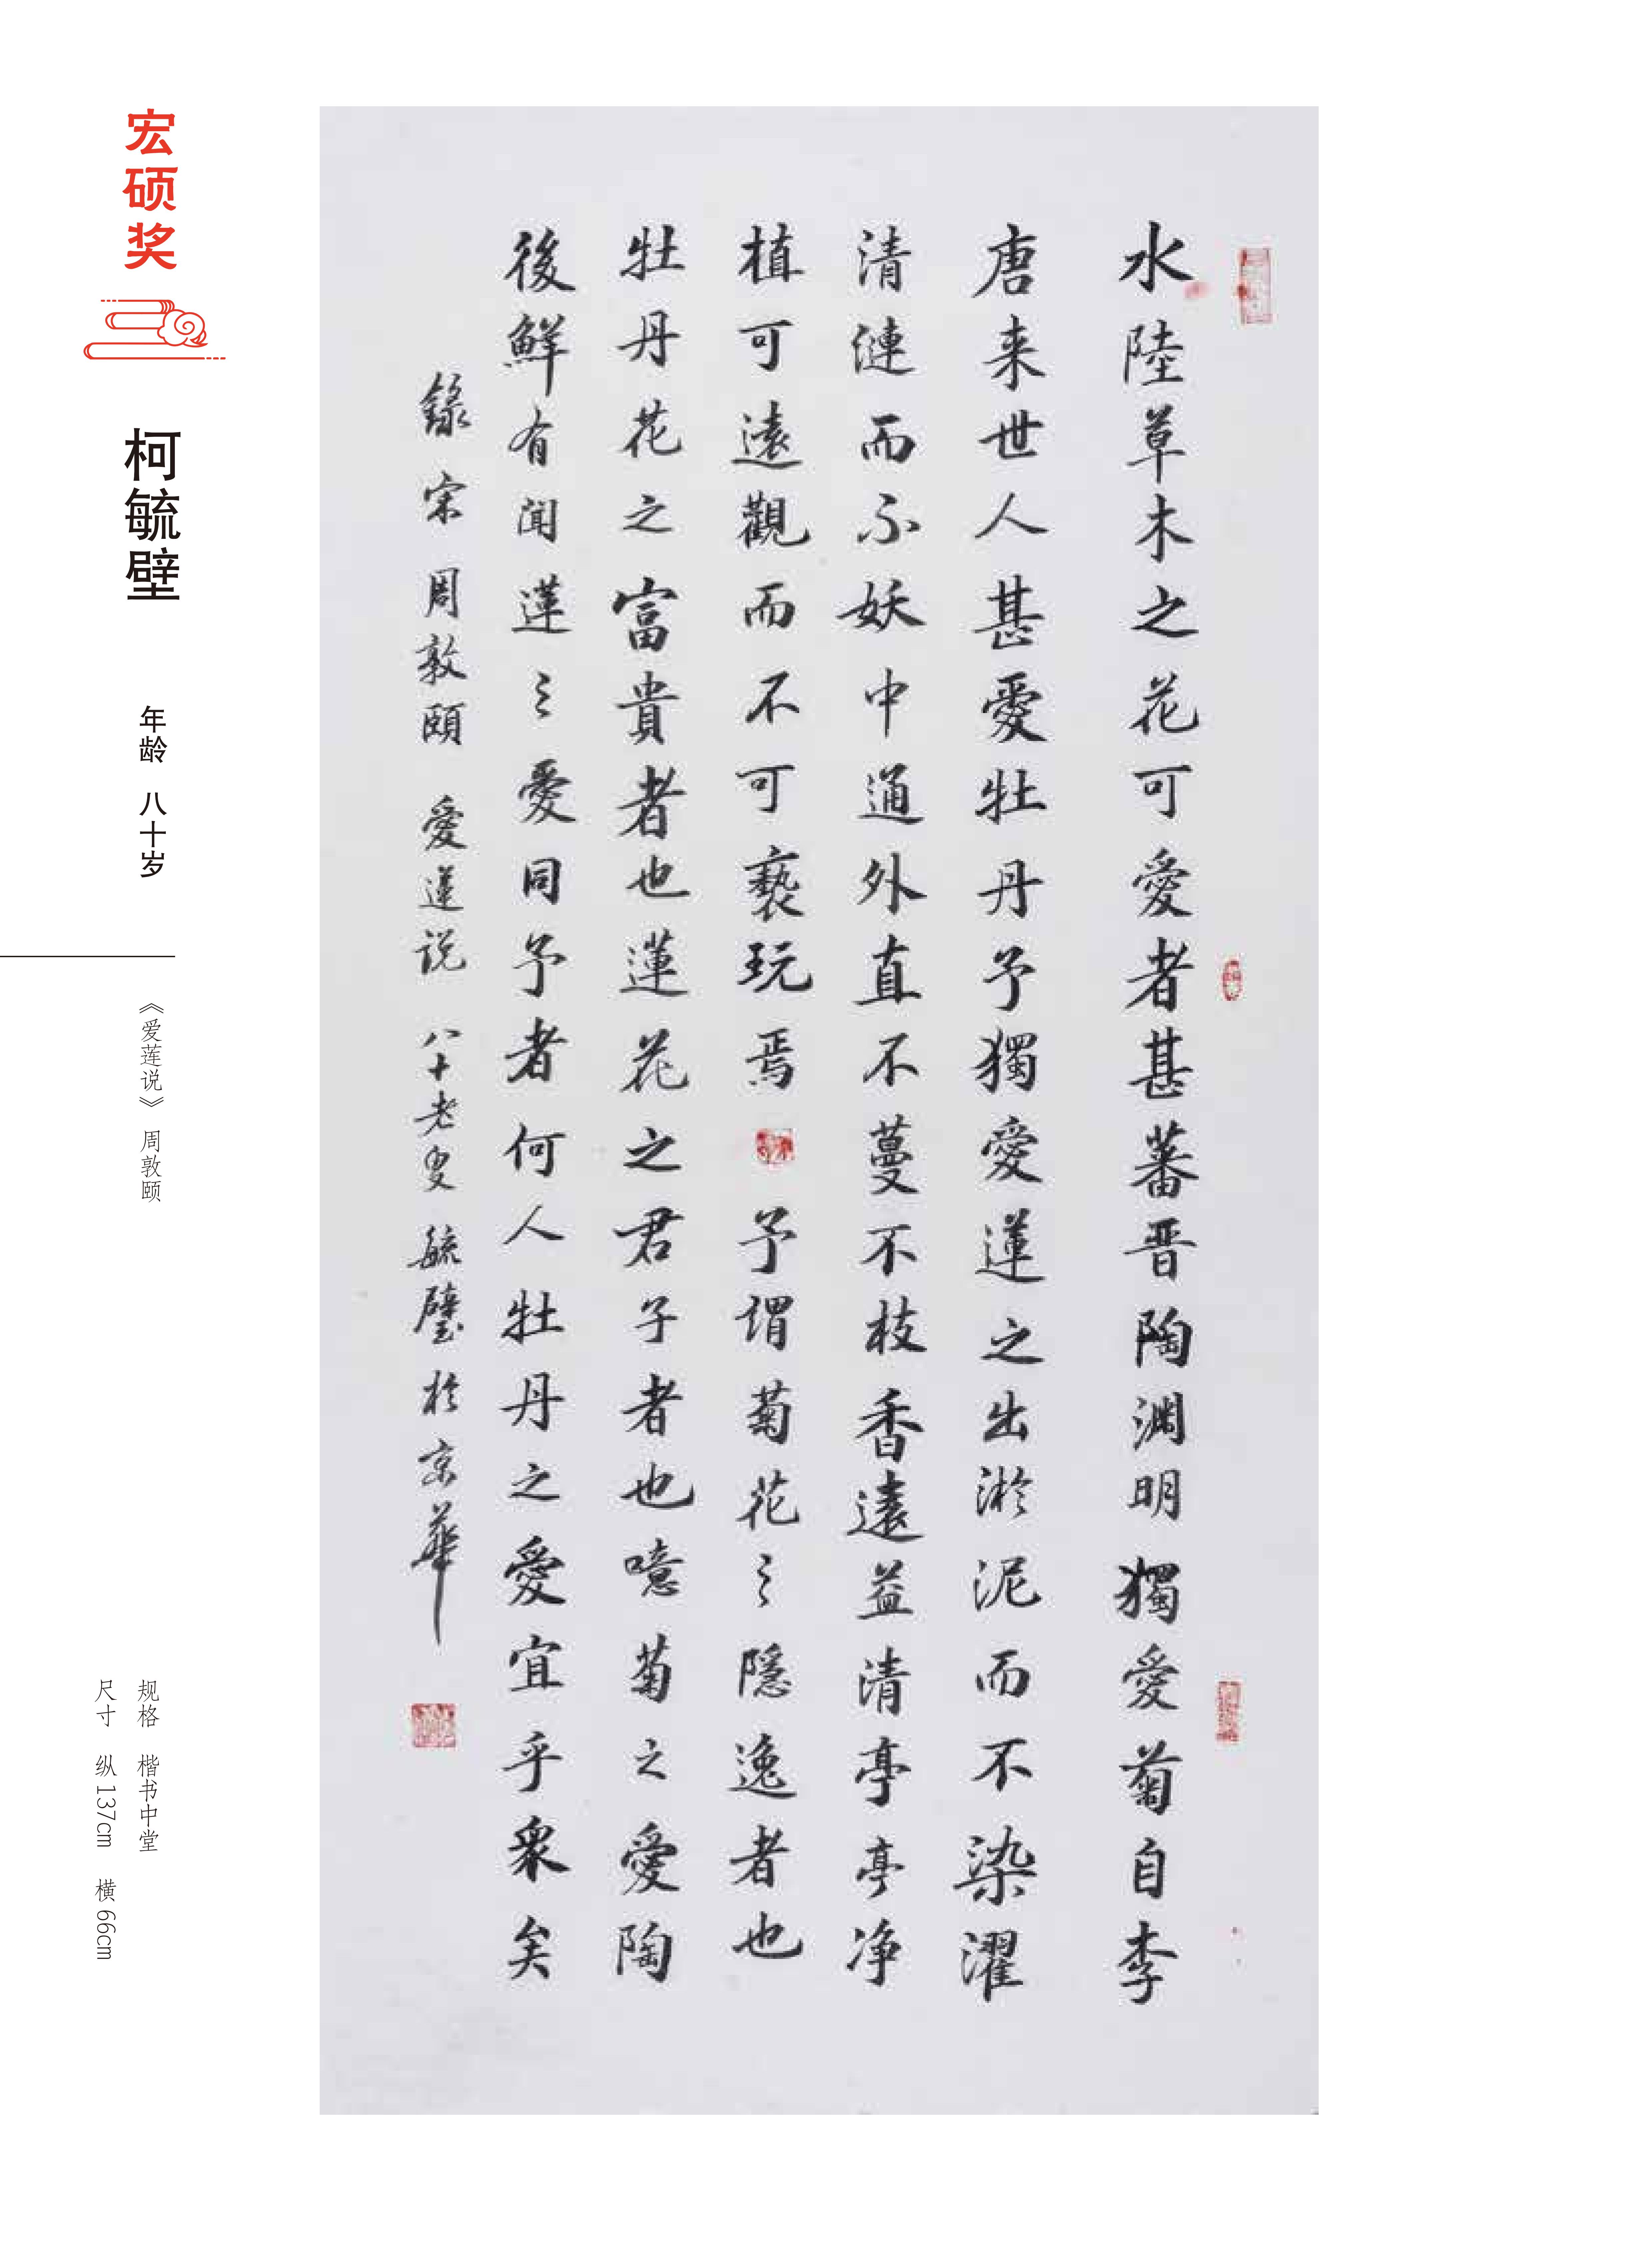 宏硕奖
柯毓壁
年龄 八十岁
《爱莲说》 周敦颐
规格 楷书中堂
尺寸 纵137cm 横66cm
水陸草木之花可愛者甚蕃晋陶渊明獨愛菊自李
唐来世人甚愛牡丹予獨愛蓮之出淤泥而不染濯
清漣而不妖中通外直不蔓不枝香遠益清亭亭净
植可遠觀而不可褻玩焉予謂菊花之隱逸者也
牡丹花之富貴者也蓮花之君子者也噫菊之愛陶
後鮮有闻蓮之愛同予者何人牡丹之愛宜乎衆矣
錄宋周敦頤愛蓮说八十老叟毓璧於京華